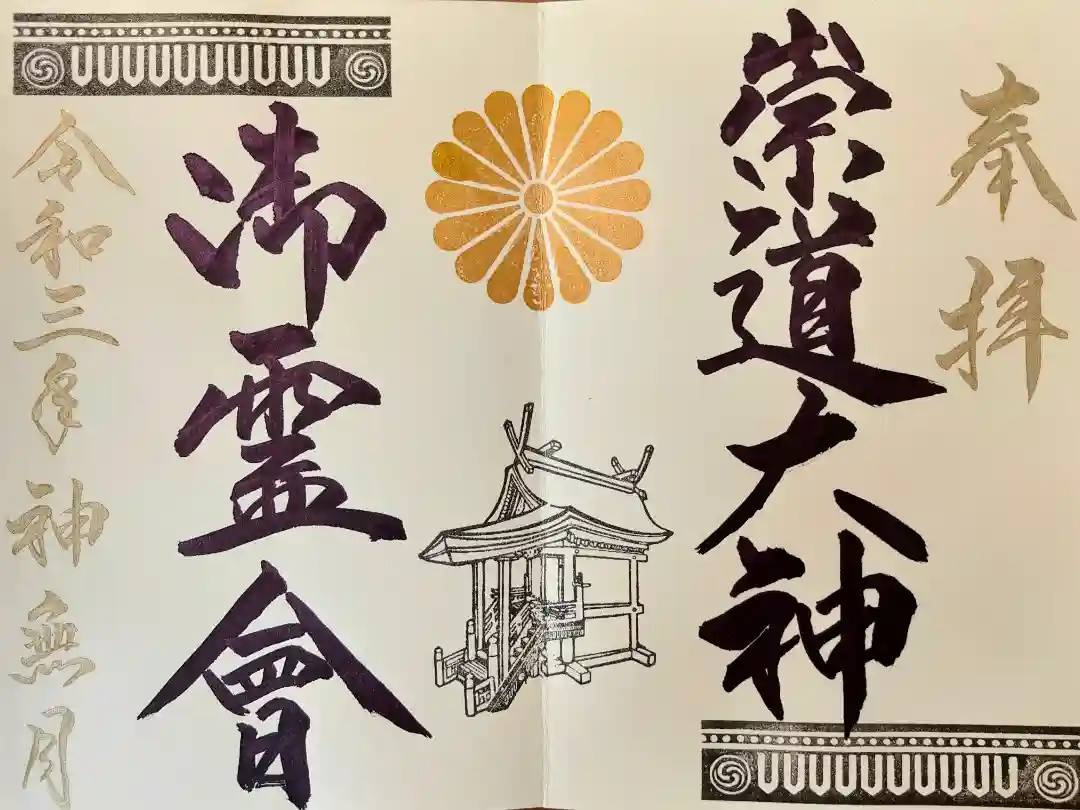 奉拝
崇道大神
御霊會
令和三年神無月